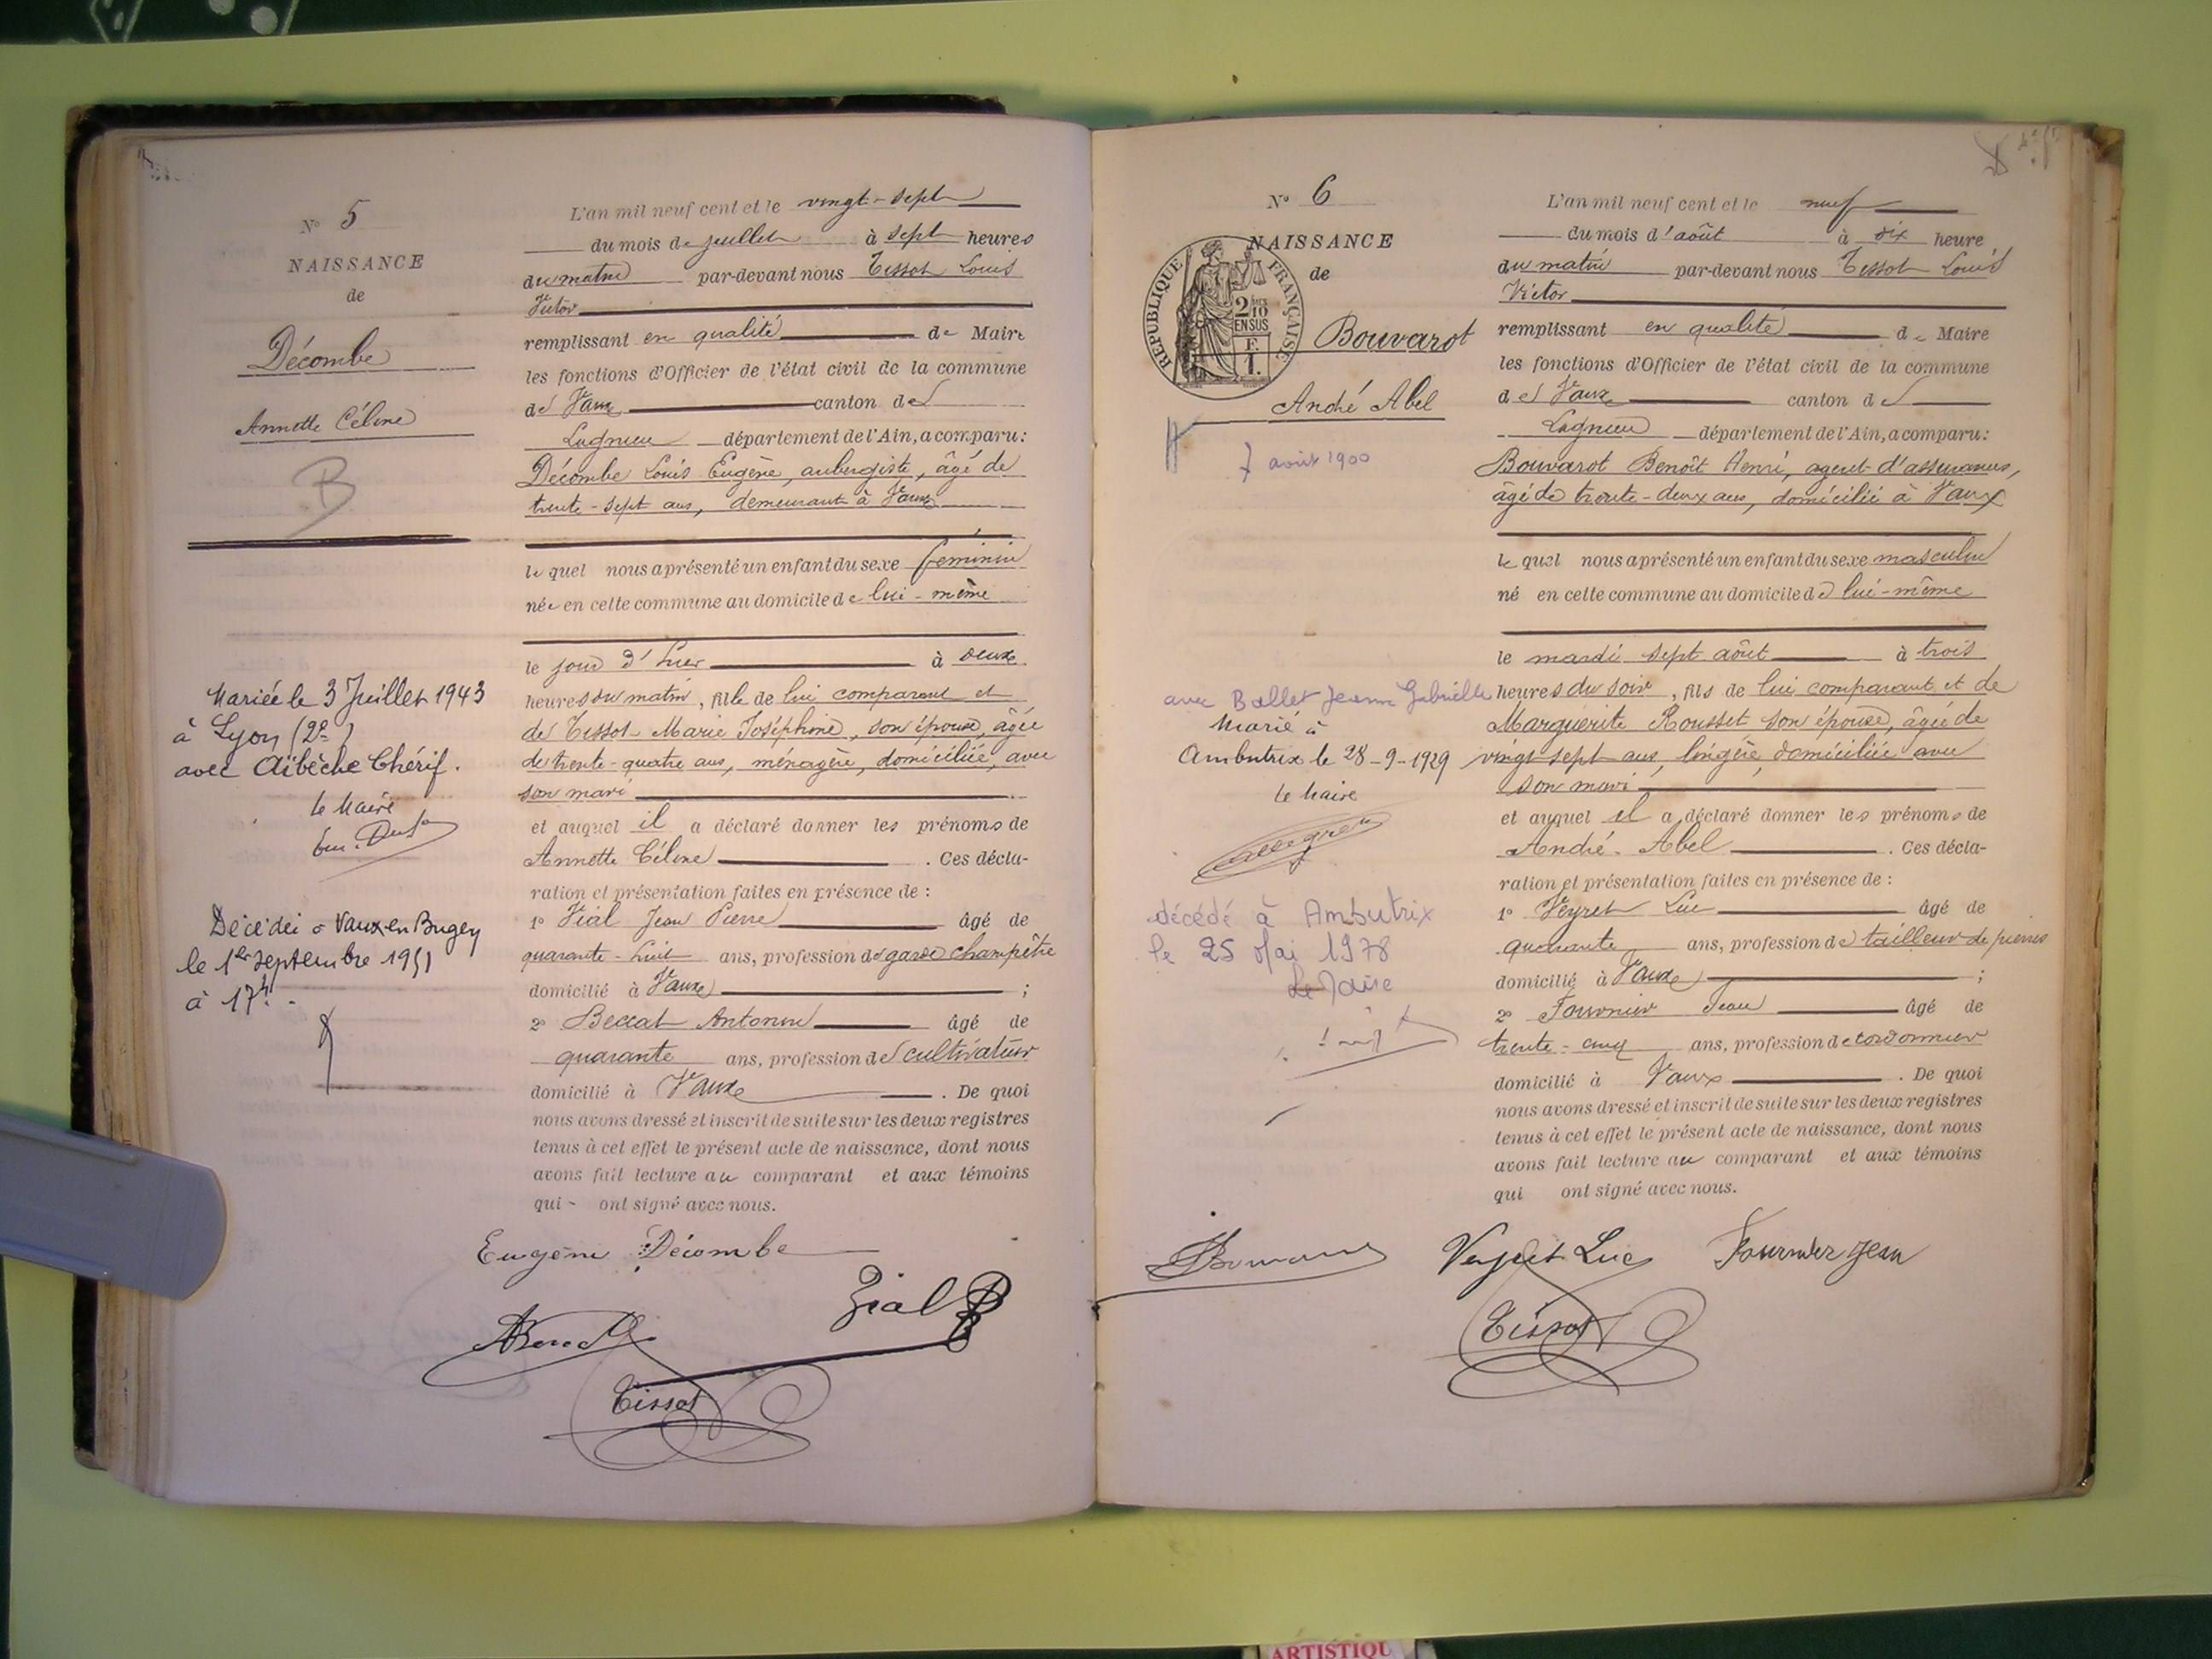 N° 5
NAISSANCE
de
Décombe
Annette Céline
B
Mariée le 3 Juillet 1943
à Lyon (2e)
avec Aïbèche Chérif.
le Maire
Décédée à Vaux en Bugey
le 1er septembre 1951
à 17h
L'an mil neuf cent et le vingt-sept
du mois de juillet à sept heures
du matin par-devant nous Tissot Louis
Victor
remplissant en qualité de Maire
les fonctions d'Officier de l'état civil de la commune
de Vaux canton de
Lagnieu département de l'Ain, a comparu:
Décombe Louis Eugène, aubergiste, âgé de
trente-sept ans, demeurant à Vaux
le quel nous a présenté un enfant du sexe féminin
née en cette commune au domicile de lui-même
le jour d'hier à deux
heures du matin, fille de lui comparant et
de Tissot Marie Joséphine, son épouse, âgée
de trente-quatre ans, ménagère, domiciliée avec
son mari
et auquel il a déclaré donner les prénoms de
Annette Céline . Ces décla-
ration et présentation faites en présence de :
1° Vial Jean Pierre âgé de
quarante-huit ans, profession de garde champêtre
domicilié à Vaux ;
2° Beccat Antonin âgé de
quarante ans, profession de cultivateur
domicilié à Vaux . De quoi
nous avons dressé et inscrit de suite sur les deux registres
tenus à cet effet le présent acte de naissance, dont nous
avons fait lecture au comparant et aux témoins
qui ont signé avec nous.
Eugène Décombe
Vial
Tissot
N° 6
NAISSANCE
de
RÉPUBLIQUE FRANÇAISE
2/10
EN SUS
F.
1.
Bouvarot
André Abel
7 août 1900
avec Ballet Jeanne Gabrielle
Marié à
Ambutrix le 28-9-1929
le Maire
décédé à Ambutrix
le 25 Mai 1978
Le Maire
L'an mil neuf cent et le neuf
du mois d'août à dix heure
du matin par-devant nous Tissot Louis
Victor
remplissant en qualité de Maire
les fonctions d'Officier de l'état civil de la commune
de Vaux canton de
Lagnieu département de l'Ain, a comparu:
Bouvarot Benoît Henri, agent d'assurances,
âgé de trente-deux ans, domicilié à Vaux
le quel nous a présenté un enfant du sexe masculin
né en cette commune au domicile de lui-même
le mardi sept août à trois
heures du soir, fils de lui comparant et de
Marguerite Rousset son épouse, âgée de
vingt sept ans, lingère, domiciliée avec
son mari
et auquel il a déclaré donner les prénoms de
André Abel . Ces décla-
ration et présentation faites en présence de :
1° Veyret Luc âgé de
quarante ans, profession de tailleur de pierres
domicilié à Vaux ;
2° Fournier Jean âgé de
trente-cinq ans, profession de cordonnier
domicilié à Vaux . De quoi
nous avons dressé et inscrit de suite sur les deux registres
tenus à cet effet le présent acte de naissance, dont nous
avons fait lecture au comparant et aux témoins
qui ont signé avec nous.
Veyret Luc Fournier Jean
Tissot
ARTISTIQU